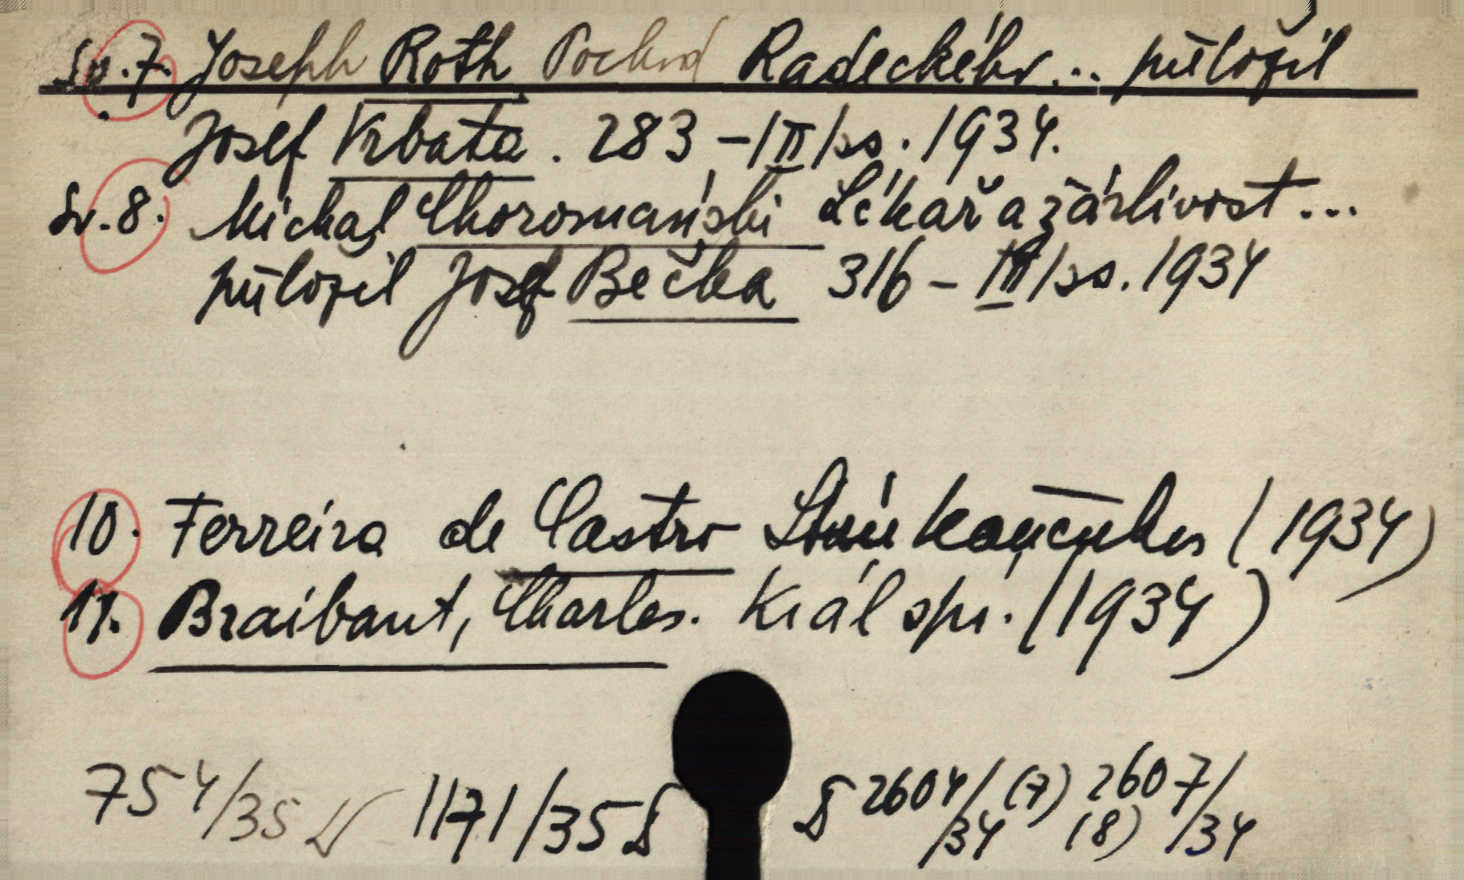 Sv. 7. Joseph Roth Pochod Radeckého... přeložil
Josef Vrbata. 283 - |II| ss. 1934.
Sv. 8. Michał Choromański Lékař a žárlivost...
přeložil Josef Bečka 316 - |III| ss. 1934
10. Ferreira de Castro (1934)
11. Braibant, Charles. Král spí. (1934)
754/35 1171/35 § § 2604/34 (7) 2607/34 (8)